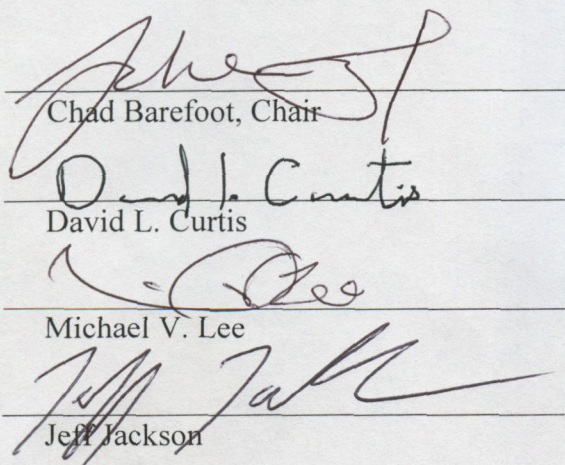 Chad Barefoot, Chair
David L. Curtis
David L. Curtis
Michael V. Lee
Lee
Jeff Jackson
Jeff Jackson